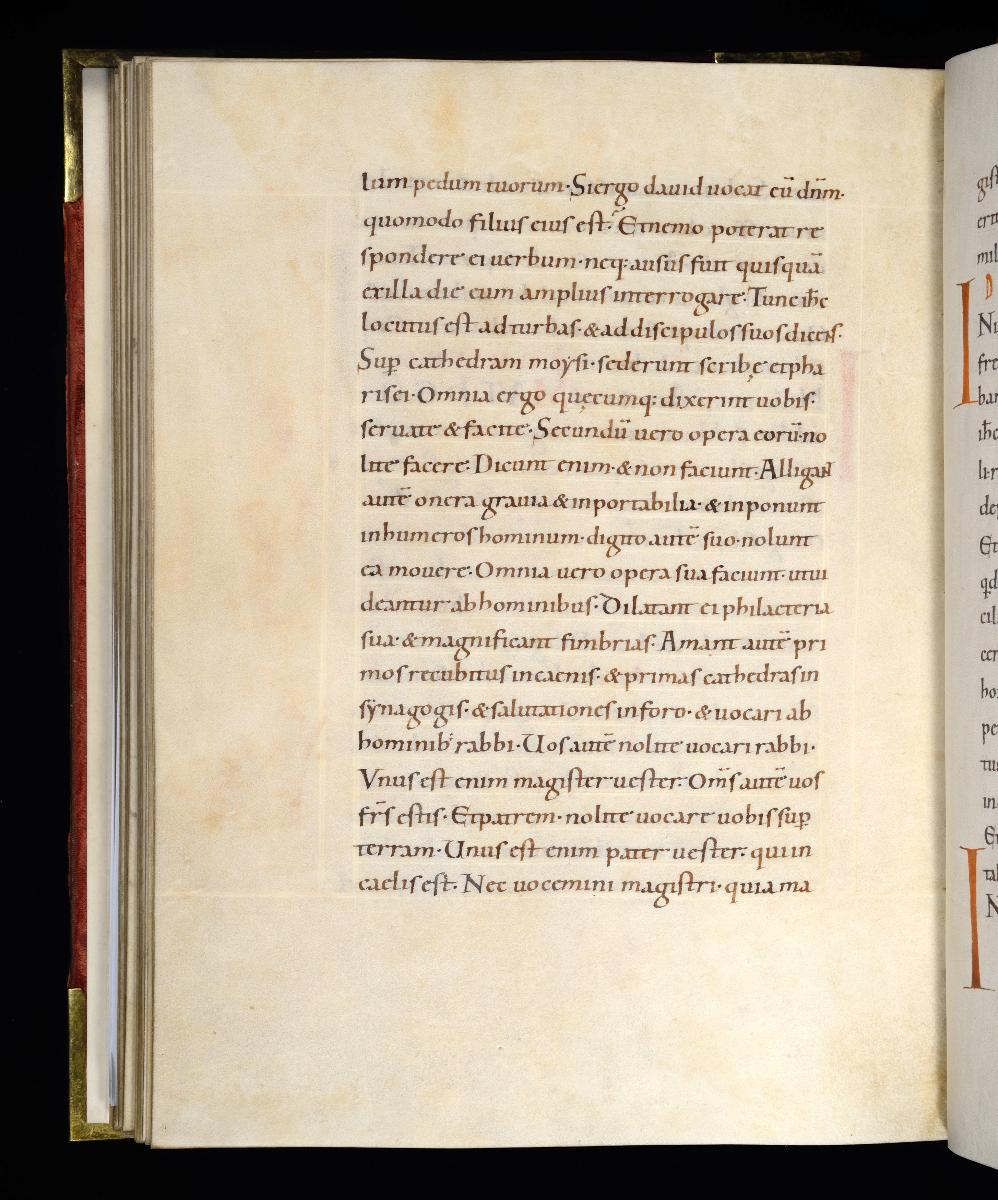 lum pedum tuorum· Si ergo dauid uocat eū dn̄m·
quomodo filius eius est·̃ Et nemo poterat re
spondere ei uerbum· neq: ausus fuit quisquā
ex illa die eum amplius interrogare· Tunc ih̄c
locutus est ad turbas· & ad discipulos suos dicens·
Sup̱ cathedram moẏsi· sederunt scribę et pha
risei· Omnia ergo quęcumq: dixerint uobis:
seruate & facite· Secundū uero opera eorū· no
lite facere: Dicunt enim· & non faciunt· Alligant
autē onera grauia & inportabilia· & inponunt
in humeros hominum· digito autē suo· nolunt
ea mouere· Omnia uero opera sua faciunt· ut ui
deantur ab hominibus· Dilatant ei philacteria
sua· & magnificant fimbrias· Amant autē pri
mos recubitus in caenis· & primas cathedras in
sẏnagogis· & salutationes in foro· & uocari ab
hominib: rabbi· Uos autē nolite uocari rabbi·
Vnus est enim magister uester: Om̄s autē uos
fr̄s estis· Et patrem· nolite uocare uobis sup̱
terram· Unus est enim pater uester: qui in
caelis est· Nec uocemini magistri· quia ma